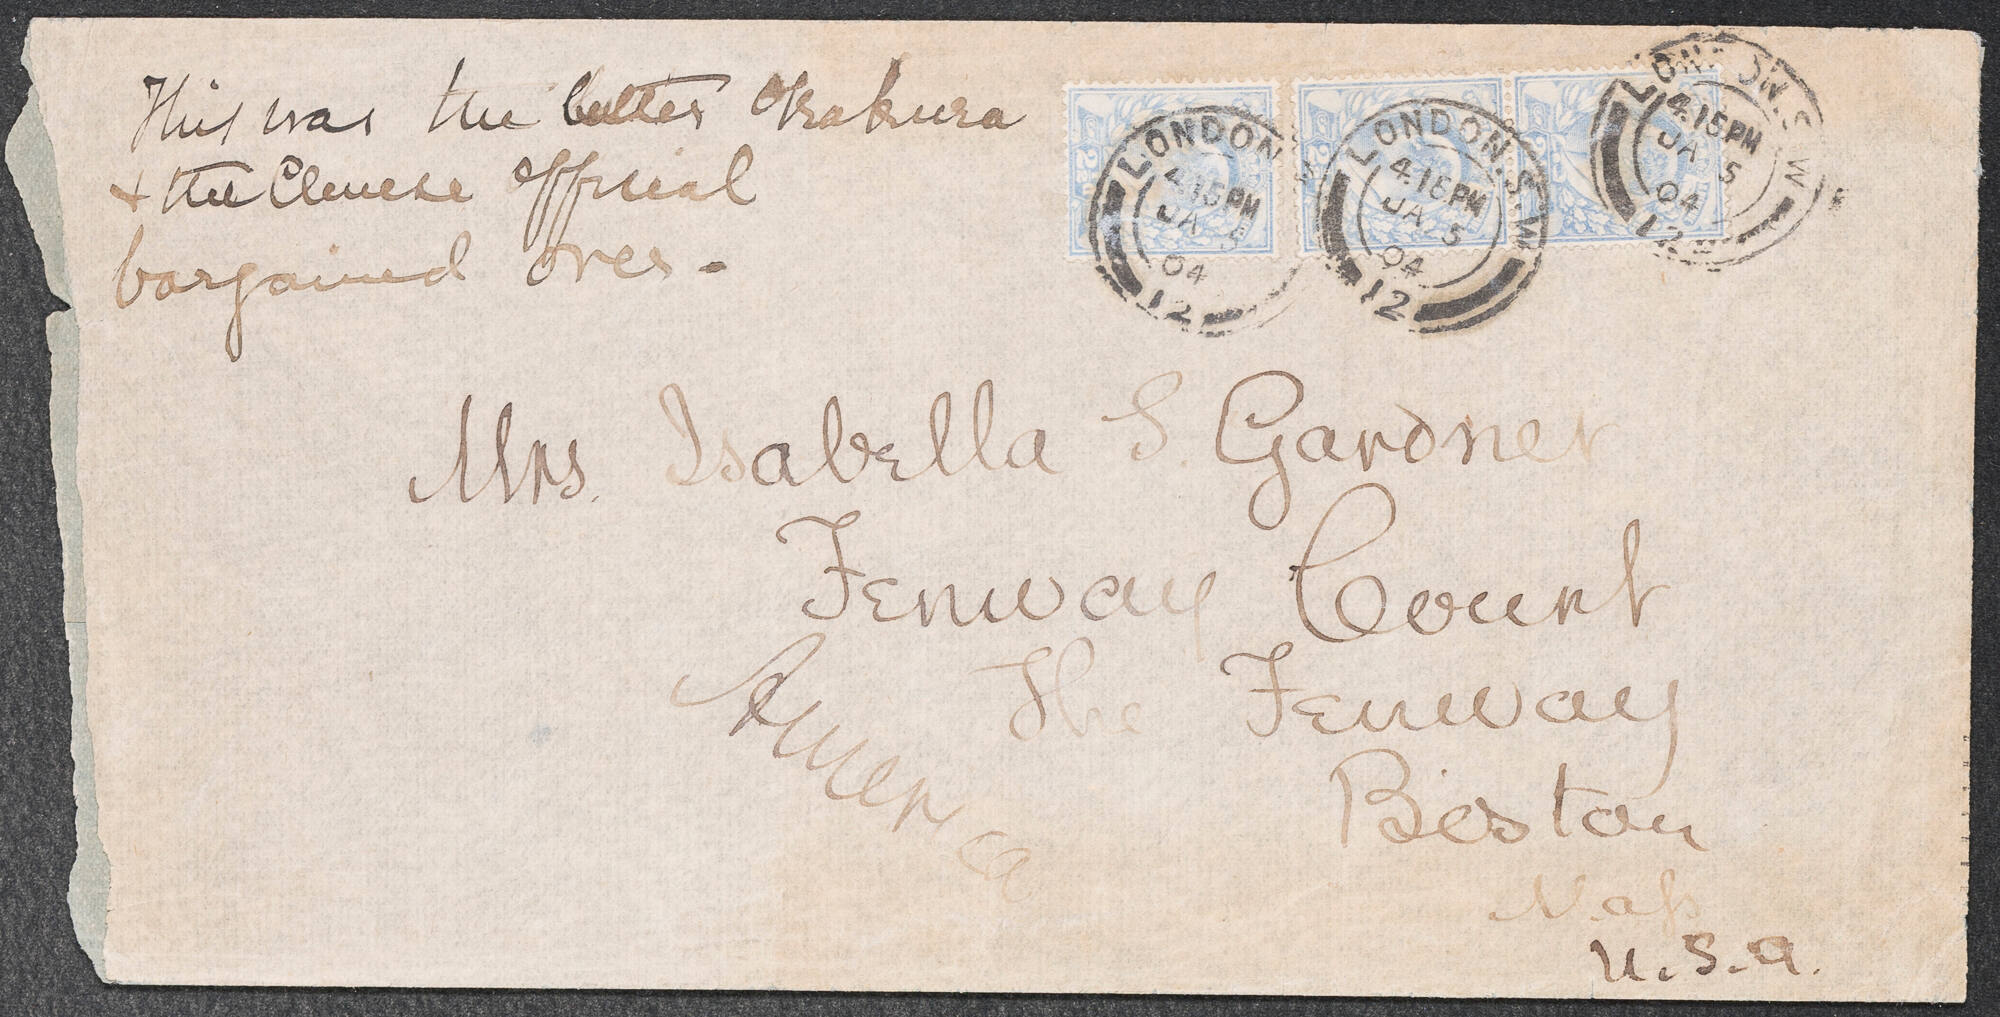 This was the letter Okakura
& the Chinese official
bargained over. -
LONDON. S
4.15PM
JA 5
04
12
LONDON.S.W
4.15PM
JA 5
04
12
LONDON.S.W
4.15PM
JA 5
04
12
Mrs. Isabella S. Gardner
Fenway Court
The Fenway
America
Boston
Mass
U.S.A.